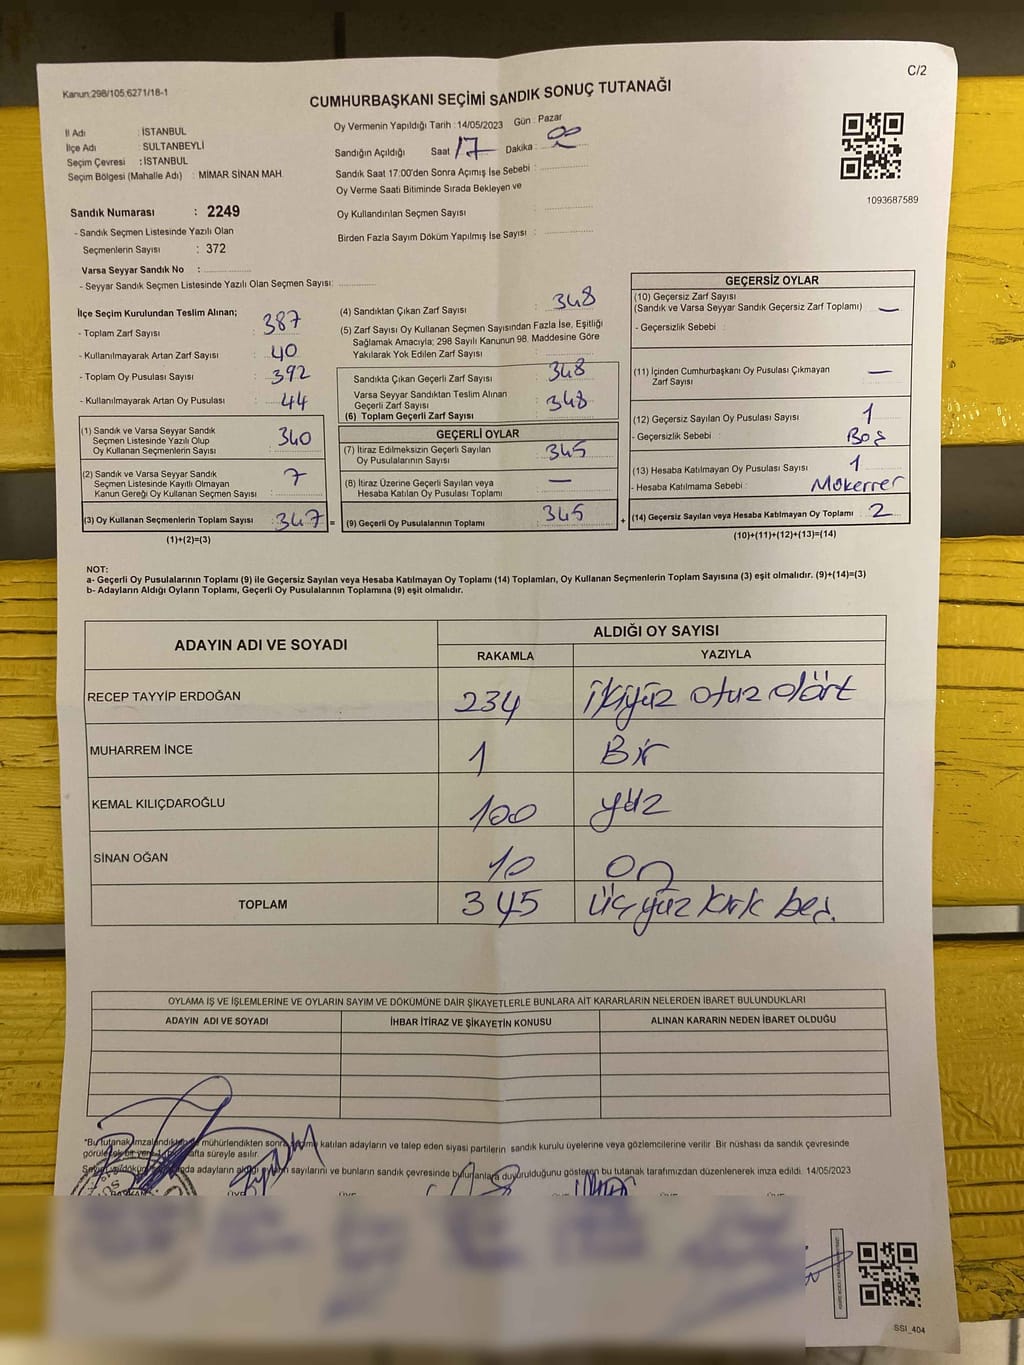 Kanun:298/105;6271/18-1
C/2
CUMHURBAŞKANI SEÇİMİ SANDIK SONUÇ TUTANAĞI
İl Adı : İSTANBUL
İlçe Adı : SULTANBEYLİ
Seçim Çevresi : İSTANBUL
Seçim Bölgesi (Mahalle Adı) : MİMAR SİNAN MAH.
Sandık Numarası : 2249
- Sandık Seçmen Listesinde Yazılı Olan
Seçmenlerin Sayısı : 372
Varsa Seyyar Sandık No :
- Seyyar Sandık Seçmen Listesinde Yazılı Olan Seçmen Sayısı:
Oy Vermenin Yapıldığı Tarih : 14/05/2023 Gün : Pazar
Sandığın Açıldığı Saat 17 Dakika :
Sandık Saat 17:00'den Sonra Açımış İse Sebebi :
Oy Verme Saati Bitiminde Sırada Bekleyen ve
Oy Kullandırılan Seçmen Sayısı :
Birden Fazla Sayım Döküm Yapılmış İse Sayısı :
1093687589
İlçe Seçim Kurulundan Teslim Alınan;
- Toplam Zarf Sayısı : 387
- Kullanılmayarak Artan Zarf Sayısı : 40
- Toplam Oy Pusulası Sayısı : 392
- Kullanılmayarak Artan Oy Pusulası : 44
(1) Sandık ve Varsa Seyyar Sandık
Seçmen Listesinde Yazılı Olup
Oy Kullanan Seçmenlerin Sayısı : 340
(2) Sandık ve Varsa Seyyar Sandık
Seçmen Listesinde Kayıtlı Olmayan
Kanun Gereği Oy Kullanan Seçmen Sayısı : 7
(3) Oy Kullanan Seçmenlerin Toplam Sayısı : 347 =
(1)+(2)=(3)
(4) Sandıktan Çıkan Zarf Sayısı : 348
(5) Zarf Sayısı Oy Kullanan Seçmen Sayısından Fazla İse, Eşitliği
Sağlamak Amacıyla; 298 Sayılı Kanunun 98. Maddesine Göre
Yakılarak Yok Edilen Zarf Sayısı :
Sandıkta Çıkan Geçerli Zarf Sayısı : 348
Varsa Seyyar Sandıktan Teslim Alınan
Geçerli Zarf Sayısı : 348
(6) Toplam Geçerli Zarf Sayısı
GEÇERLİ OYLAR
(7) İtiraz Edilmeksizin Geçerli Sayılan
Oy Pusulalarının Sayısı : 345
(8) İtiraz Üzerine Geçerli Sayılan veya
Hesaba Katılan Oy Pusulası Toplamı : —
(9) Geçerli Oy Pusulalarının Toplamı : 345 +
GEÇERSİZ OYLAR
(10) Geçersiz Zarf Sayısı
(Sandık ve Varsa Seyyar Sandık Geçersiz Zarf Toplamı) : —
- Geçersizlik Sebebi :
(11) İçinden Cumhurbaşkanı Oy Pusulası Çıkmayan
Zarf Sayısı : —
(12) Geçersiz Sayılan Oy Pusulası Sayısı : 1
- Geçersizlik Sebebi : Boş
(13) Hesaba Katılmayan Oy Pusulası Sayısı : 1
- Hesaba Katılmama Sebebi : Mükerrer
(14) Geçersiz Sayılan veya Hesaba Katılmayan Oy Toplamı : 2
(10)+(11)+(12)+(13)=(14)
NOT:
a- Geçerli Oy Pusulalarının Toplamı (9) ile Geçersiz Sayılan veya Hesaba Katılmayan Oy Toplamı (14) Toplamları, Oy Kullanan Seçmenlerin Toplam Sayısına (3) eşit olmalıdır. (9)+(14)=(3)
b- Adayların Aldığı Oyların Toplamı, Geçerli Oy Pusulalarının Toplamına (9) eşit olmalıdır.
ADAYIN ADI VE SOYADI ALDIĞI OY SAYISI
RAKAMLA YAZIYLA
RECEP TAYYİP ERDOĞAN 234 ikiyüz otuz dört
MUHARREM İNCE 1 Bir
KEMAL KILIÇDAROĞLU 100 yüz
SİNAN OĞAN 10 on
TOPLAM 345 üçyüz kırk beş.
OYLAMA İŞ VE İŞLEMLERİNE VE OYLARIN SAYIM VE DÖKÜMÜNE DAİR ŞİKAYETLERLE BUNLARA AİT KARARLARIN NELERDEN İBARET BULUNDUKLARI
ADAYIN ADI VE SOYADI İHBAR İTİRAZ VE ŞİKAYETİN KONUSU ALINAN KARARIN NEDEN İBARET OLDUĞU
*Bu tutanak imzalandıktan ve mühürlendikten sonra seçime katılan adayların ve talep eden siyasi partilerin sandık kurulu üyelerine veya gözlemcilerine verilir. Bir nüshası da sandık çevresinde
görülecek bir yere hafta süreyle asılır.
Sayım ve döküm adayların aldığı oyların sayılarını ve bunların sandık çevresinde bulunanlara duyurulduğunu gösteren bu tutanak tarafımızdan düzenlenerek imza edildi. 14/05/2023
SSİ_404